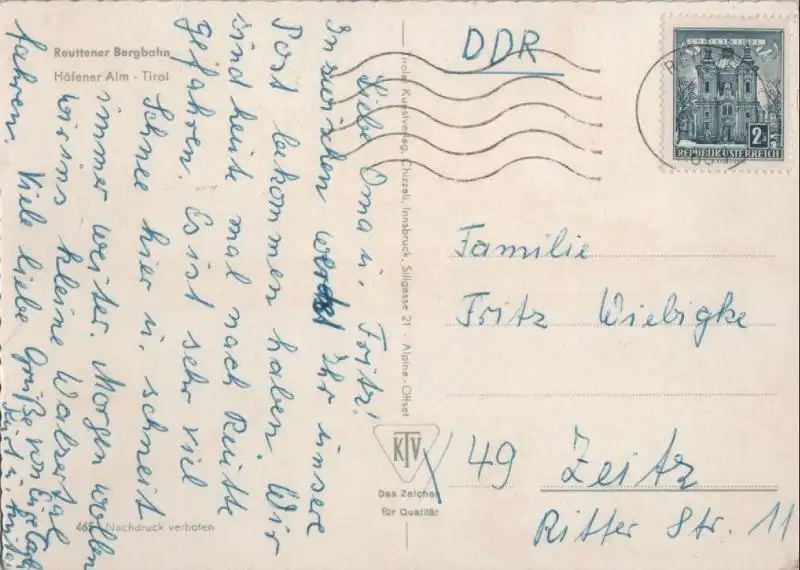 Reuttener Bergbahn
Höfener Alm - Tirol
Liebe Oma u. Fritz!
Inzwischen werdet Ihr unsere
Post bekommen haben. Wir
sind heute mal nach Reutte
gefahren. Es ist sehr viel
Schnee hier u. schneit
immer weiter. Morgen wollen
wir ins kleine Walsertal
fahren. Viele liebe Grüße von
465 Nachdruck verboten
Tiroler Kunstverlag, Chizzali, Innsbruck, Sillgasse 21 · Alpine-Offset
KTV
Das Zeichen
für Qualität
DDR
CHRISTKINDL
2S
REPUBLIK ÖSTERREICH
Familie
Fritz Wiebigke
49 Zeitz
Ritter Str. 11